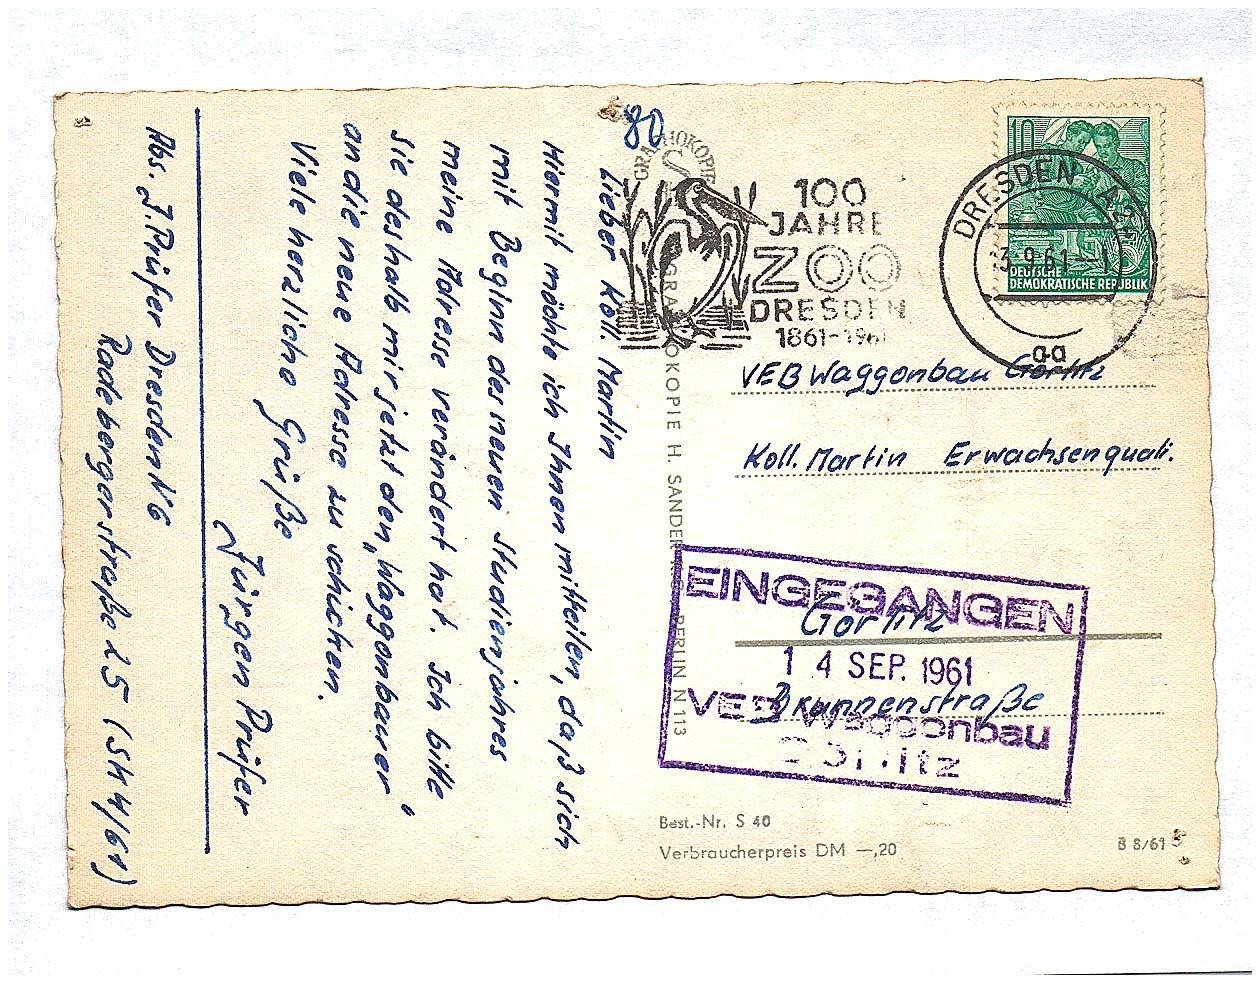 Lieber Koll. Martin
Hiermit möchte ich Ihnen mitteilen, daß sich
mit Beginn des neuen Studienjahres
meine Adresse verändert hat. Ich bitte
Sie deshalb mir jetzt den „Waggonbauer“
an die neue Adresse zu schicken.
Viele herzliche Grüße
Jürgen Prüfer
Abs. J. Prüfer Dresden N6
Radebergerstraße 25 (SK4/61)
80
GRAPHOKOPIE H. SANDER
BERLIN N 113
100
JAHRE
ZOO
DRESDEN
1861-1961
10
DEUTSCHE
DEMOKRATISCHE REPUBLIK
DRESDEN
9.61
aa
VEB Waggonbau Görlitz
Koll. Martin Erwachsenquali.
Görlitz
Brunnenstraße
EINGEGANGEN
14 SEP. 1961
VEB Waggonbau
Görlitz
Best.-Nr. S 40
Verbraucherpreis DM —,20
B 8/61